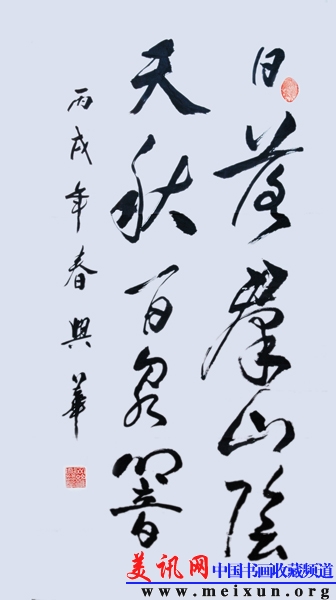 日落群山陰
天秋百泉響
丙戌年春興華
美讯网 中国书画收藏频道
www.meixun.org